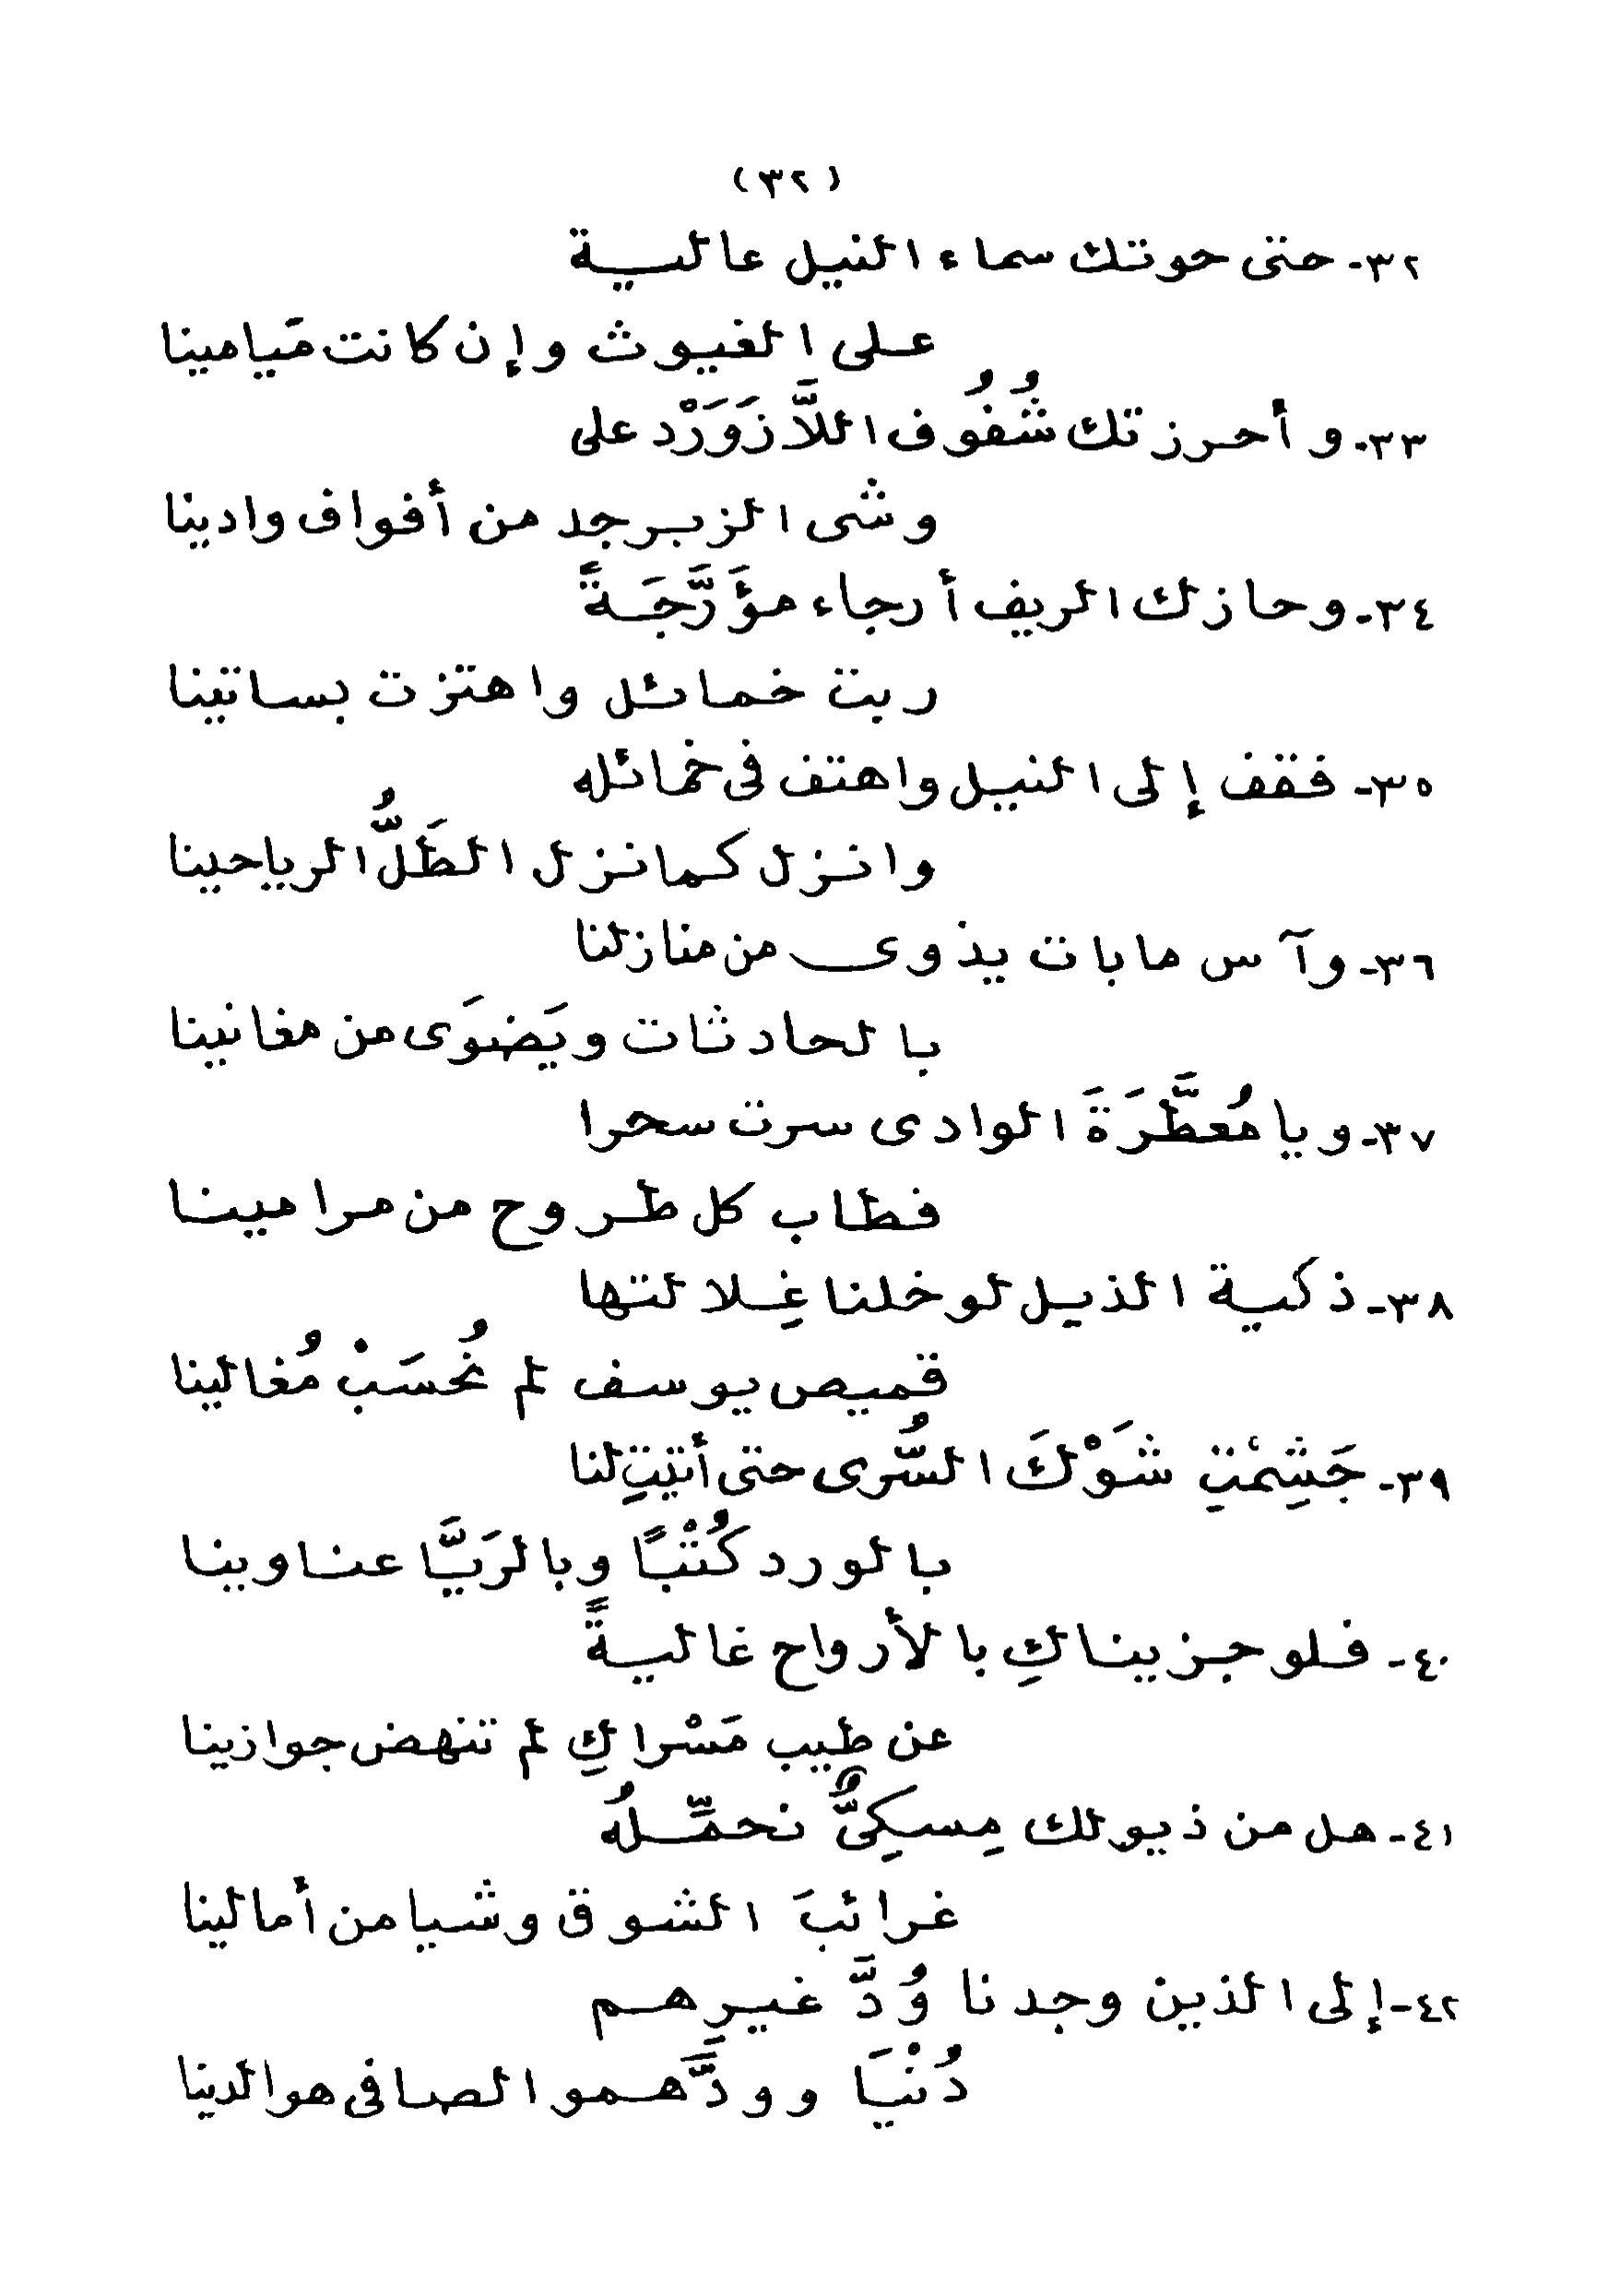 (٣٢)
٣٢- حتى حوتك سماء النيل عالية
على الغيوث وإن كانت مَيامينا
٣٣- وأحرزتك شُفُوف اللاَّزَوَرْد على
وشى الزبرجد من أفواف وادينا
٣٤- وحازك الريف أرجاء مؤَرَّجَةً
ربت خمائل واهتزت بساتينا
٣٥- فقف إلى النيل واهتف فى خمائله
وانزل كما نزل الطَلُّ الرياحينا
٣٦- وآس مابات يذوى من منازلنا
بالحادثات ويَضوَى من مغانينا
٣٧- ويا مُعطَّرَةَ الوادى سرت سحرا
فطاب كل طروح من مرامينا
٣٨- ذكية الذيل لو خلنا غِلالتها
قميص يوسف لم نُحسَبْ مُغالينا
٣٩- جَشِمْتِ شَوْكَ السُّرى حتى أتيتِ لنا
بالورد كُتْبًا وبالرَيَّا عناوينا
٤٠- فلو جزيناكِ بالأرواح غاليةً
عن طيب مَسْراكِ لم تنهض جوازينا
٤١- هل من ذيولك مِسكِىٌّ نحمِّلهُ
غرائبَ الشوق وشيا من أمالينا
٤٢- إلى الذين وجدنا وُدَّ غيرهم
دُنْيَا وودَّهمو الصافى هو الدنيا